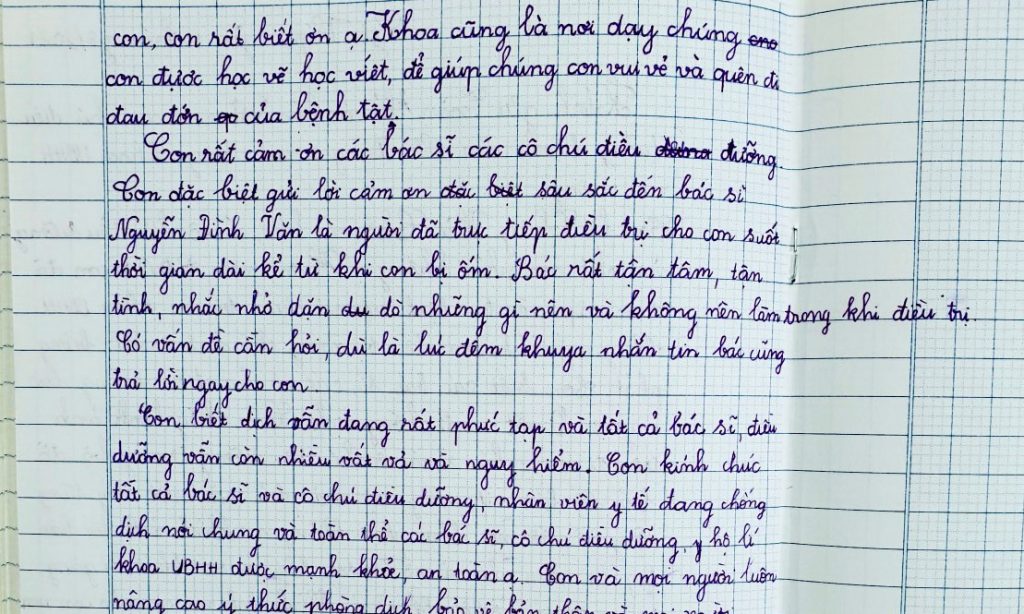 con, con rất biết ơn ạ. Khoa cũng là nơi dạy chúng
con được học vẽ học viết, để giúp chúng con vui vẻ và quên đi
đau đớn của bệnh tật.
Con rất cảm ơn các bác sĩ các cô chú điều dưỡng.
Con đặc biệt gửi lời cảm ơn đặc biệt sâu sắc đến bác sĩ
Nguyễn Đình Văn là người đã trực tiếp điều trị cho con suốt
thời gian dài kể từ khi con bị ốm. Bác rất tận tâm, tận
tình, nhắc nhở dặn du dò những gì nên và không nên làm trong khi điều trị.
Có vấn đề cần hỏi, dù là lúc đêm khuya nhắn tin bác cũng
trả lời ngay cho con.
Con biết dịch vẫn đang rất phức tạp và tất cả bác sĩ, điều
dưỡng vẫn còn nhiều vất vả và nguy hiểm. Con kính chúc
tất cả bác sĩ và cô chú điều dưỡng, nhân viên y tế đang chống
dịch nói chung và toàn thể các bác sĩ, cô chú điều dưỡng, y hộ lí
khoa UBHH được mạnh khỏe, an toàn ạ. Con và mọi người luôn
nâng cao ý thức phòng dịch bảo vệ bản thân và mọi người